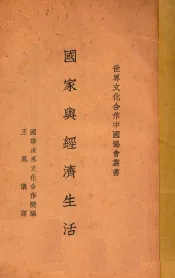 世界文化合作中國協會叢書
國家與經濟生活
國際世界文化合作院編
王鳳儀譯